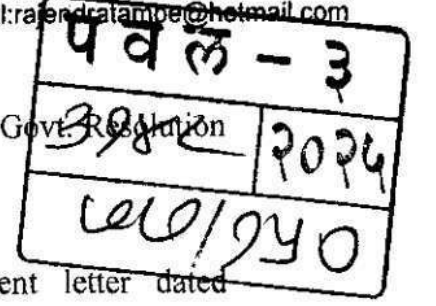 l:rajendratambe@hotmail.com
पवल - ३
Govt. Resolution
२०२५
ent letter dated